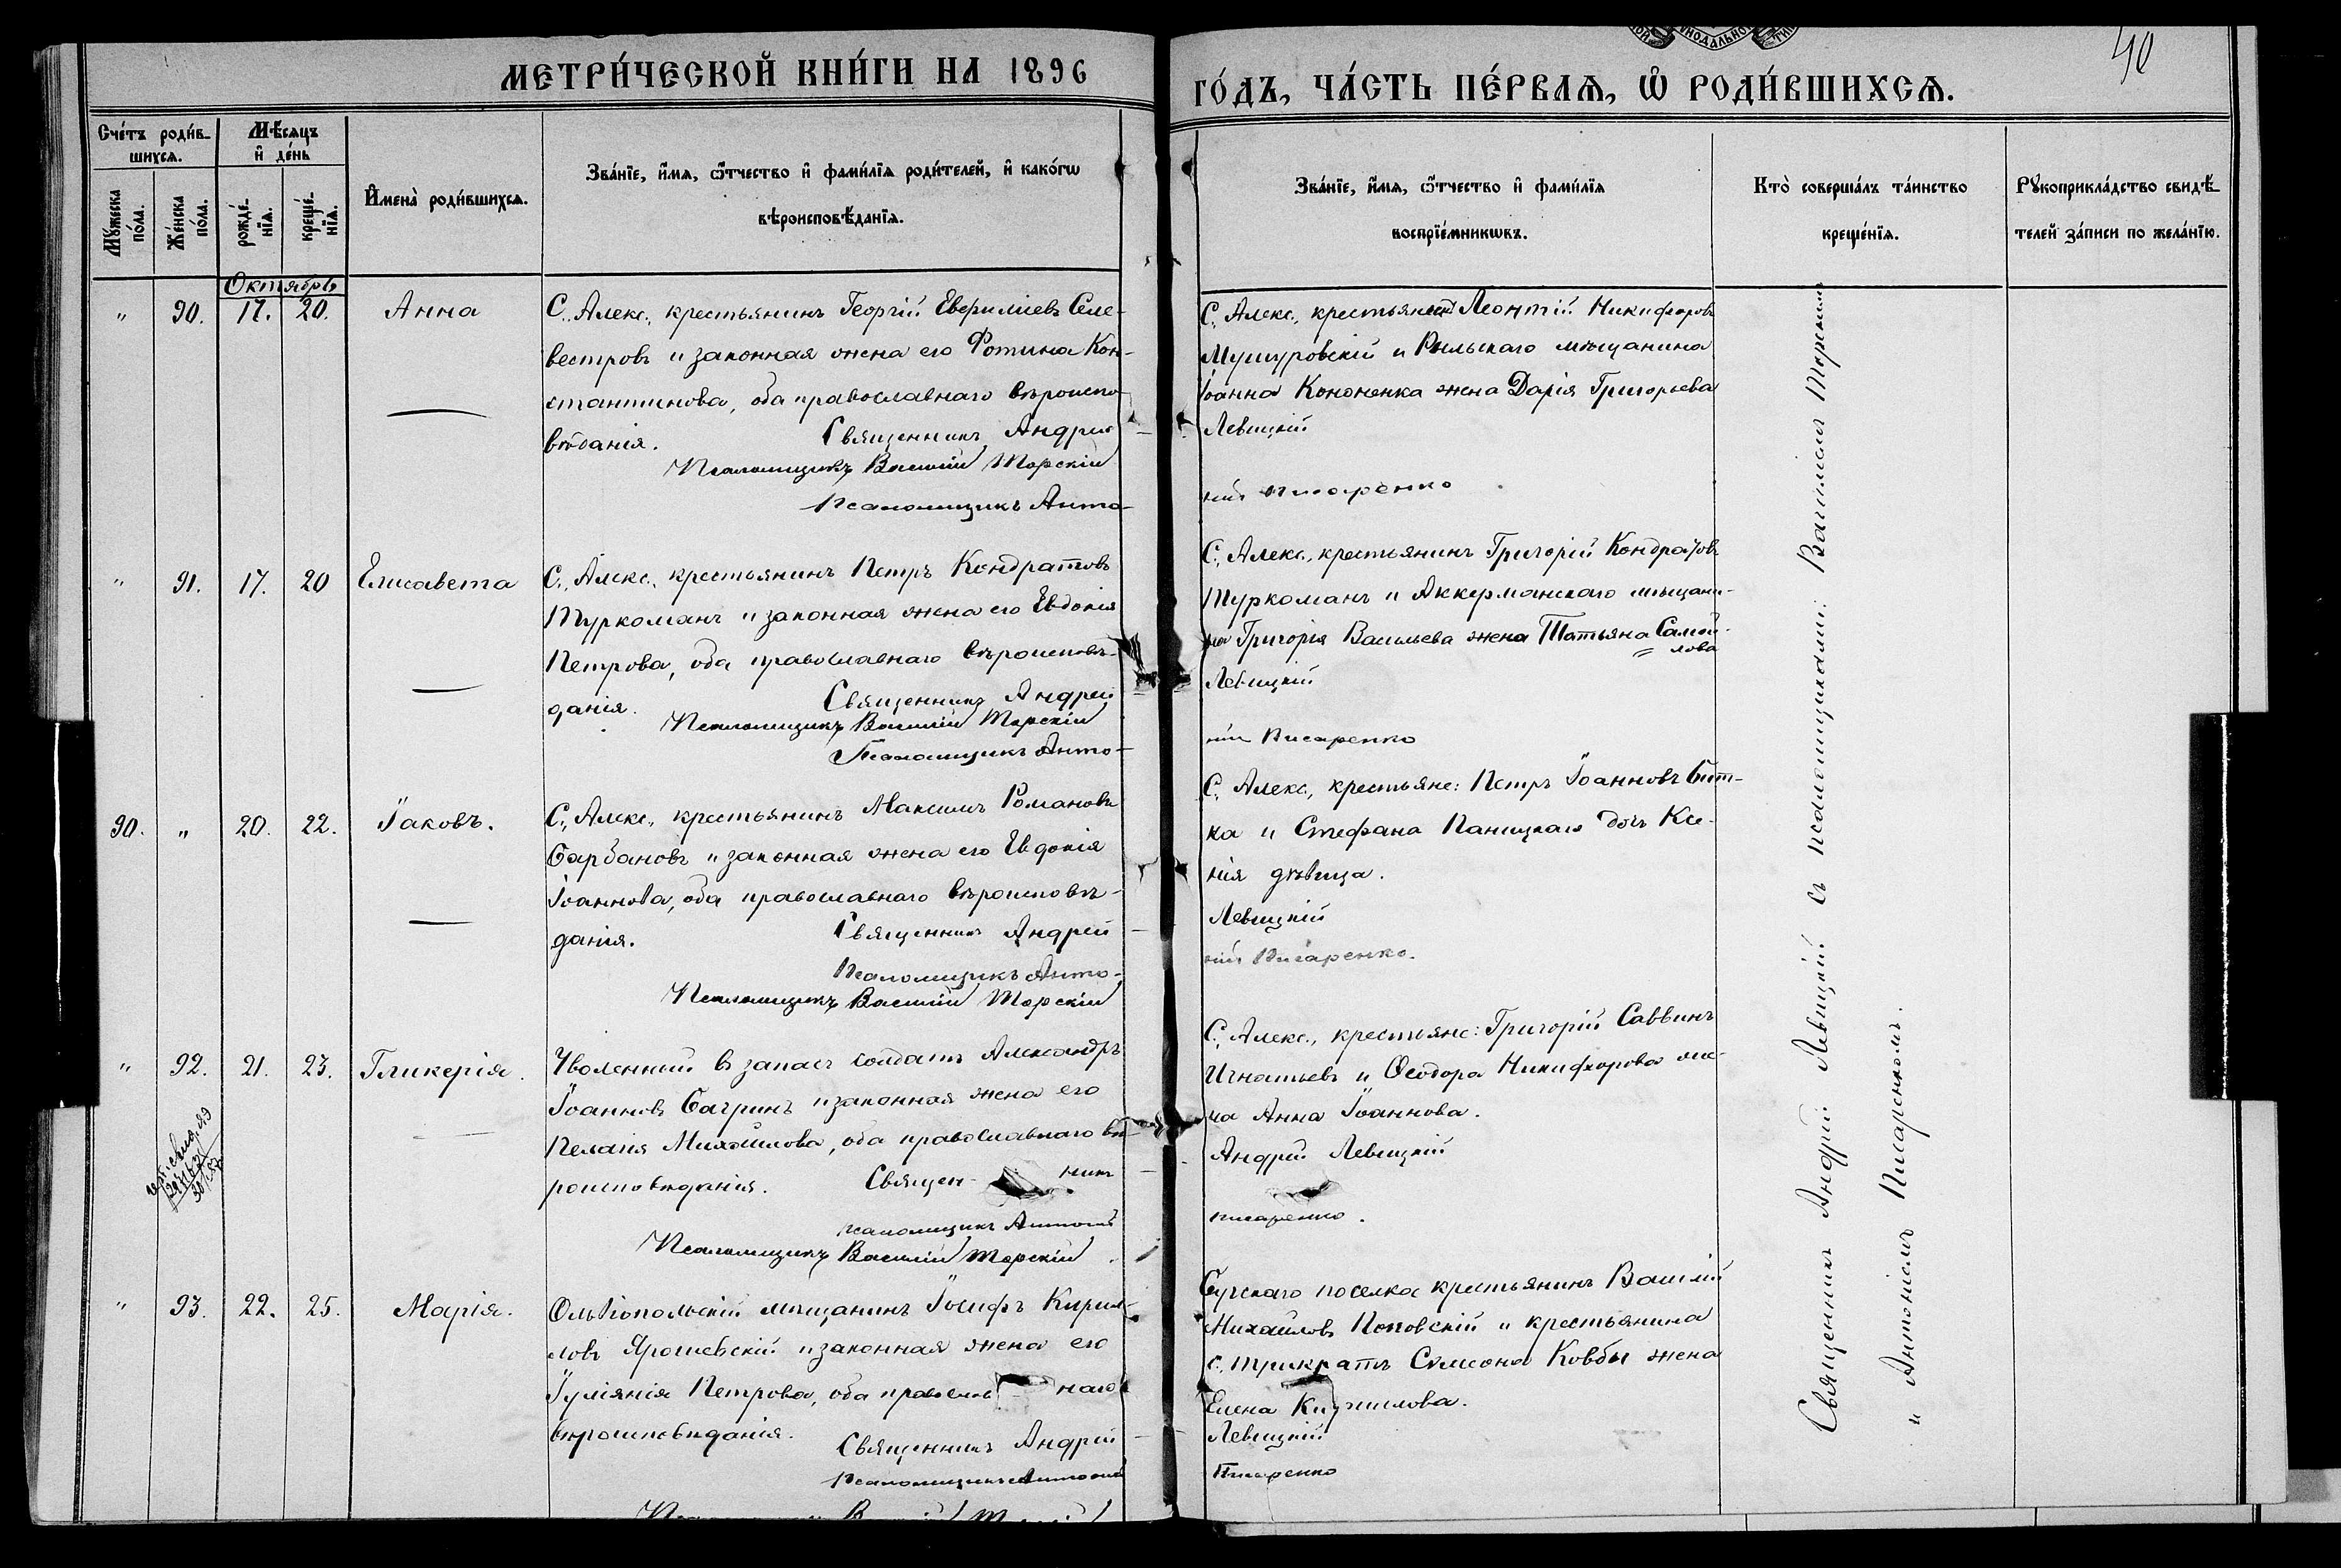 МЕТРИ́ЧЕСКОЙ КНИ́ГИ НА 1896
ГО́ДЪ, ЧА́СТЬ ПЕ́РВАѦ, Ѡ҆ РОДИ́ВШИХСѦ.
40
Сче́тъ роди́в-
шихсѧ.
Мꙋ́жеска
по́ла.
Же́нска
по́ла.
Мѣ́сѧцъ
и҆ де́нь
рожде́-
нїѧ.
креще́-
нїѧ.
И҆мена̀ роди́вшихсѧ.
Зва́нїе, и҆́мѧ, ѻ҆́тчество и҆ фами́лїѧ роди́телей, и҆ како́гѡ
вѣроисповѣ́данїѧ.
Зва́нїе, и҆́мѧ, ѻ҆́тчество и҆ фами́лїѧ
воспрїе́мникѡвъ.
Кто̀ соверша́лъ та́инство
креще́нїѧ.
Рꙋкоприкла́дство свидѣ́-
телей за́писи по жела́нїю.
Октябрь
" 90. 17. 20. Анна
С. Алекс., крестьянинъ Георгій Селе-
вестровъ и законная жена его Фотина Кон-
стантинова, оба православнаго вѣроиспо-
вѣданія. Священникъ Андрей
Псаломщикъ Василій Торскій
Псаломщикъ Анто-
С. Алекс., крестьянинъ Леонтій Никифоровъ
и Рыльскаго мѣщанина
Іоанна Кононенка жена Дарія Григорьева
Левицкій
ній Писаренко
" 91. 17. 20 Елисавета
С. Алекс., крестьянинъ Петръ Кондратовъ
Туркоманъ и законная жена его Евдокія
Петрова, оба православнаго вѣроисповѣ-
данія. Священникъ Андрей
Псаломщикъ Василій Торскій
Псаломщикъ Анто-
С. Алекс., крестьянинъ Григорій Кондратовъ
Туркоманъ и Аккерманскаго мѣщани-
на Григорія Васильева жена Татьяна Самой-
лова
Левицкій
ній Писаренко
90. " 20. 22. Іаковъ.
С. Алекс., крестьянинъ Максимъ Романовъ
Барбановъ и законная жена его Евдокія
Іоаннова, оба православнаго вѣроисповѣ-
данія. Священникъ Андрей
Псаломщикъ Анто-
Псаломщикъ Василій Торскій
С. Алекс., крестьяне: Петръ Іоанновъ Бит-
ка и Стефана Паницкаго дочь Ксе-
нія дѣвица.
Левицкій
ній Писаренко.
" 92. 21. 23. Гликерія.
Уволенный въ запасъ солдатъ Александръ
Іоанновъ Багринъ и законная жена его
Пелагія Михайлова, оба православнаго вѣ-
роисповѣданія. Священ- никъ
псаломщикъ Антоній
Псаломщикъ Василій Торскій
С. Алекс., крестьяне: Григорій Саввинъ
Игнатьевъ и Ѳеодора Никифорова же-
на Анна Іоаннова.
Андрей Левицкій
Писаренко.
" 93. 22. 25. Марія.
Ольвіопольскій мѣщанинъ Іосифъ Кирил-
ловъ Ярошевскій и законная жена его
Іуліянія Петрова, оба православ наго
вѣроисповѣданія. Священникъ Андрей
Псаломщикъ Антоній
Бугскаго поселка крестьянинъ Василій
Михайловъ Поповскій и крестьянина
с. Трикратъ Симеона Ковбы жена
Елена Кириллова.
Левицкій
Писаренко
Священникъ Андрей Левицкій съ псаломщиками: Василіемъ Торскимъ
и Антоніемъ Писаренкомъ.